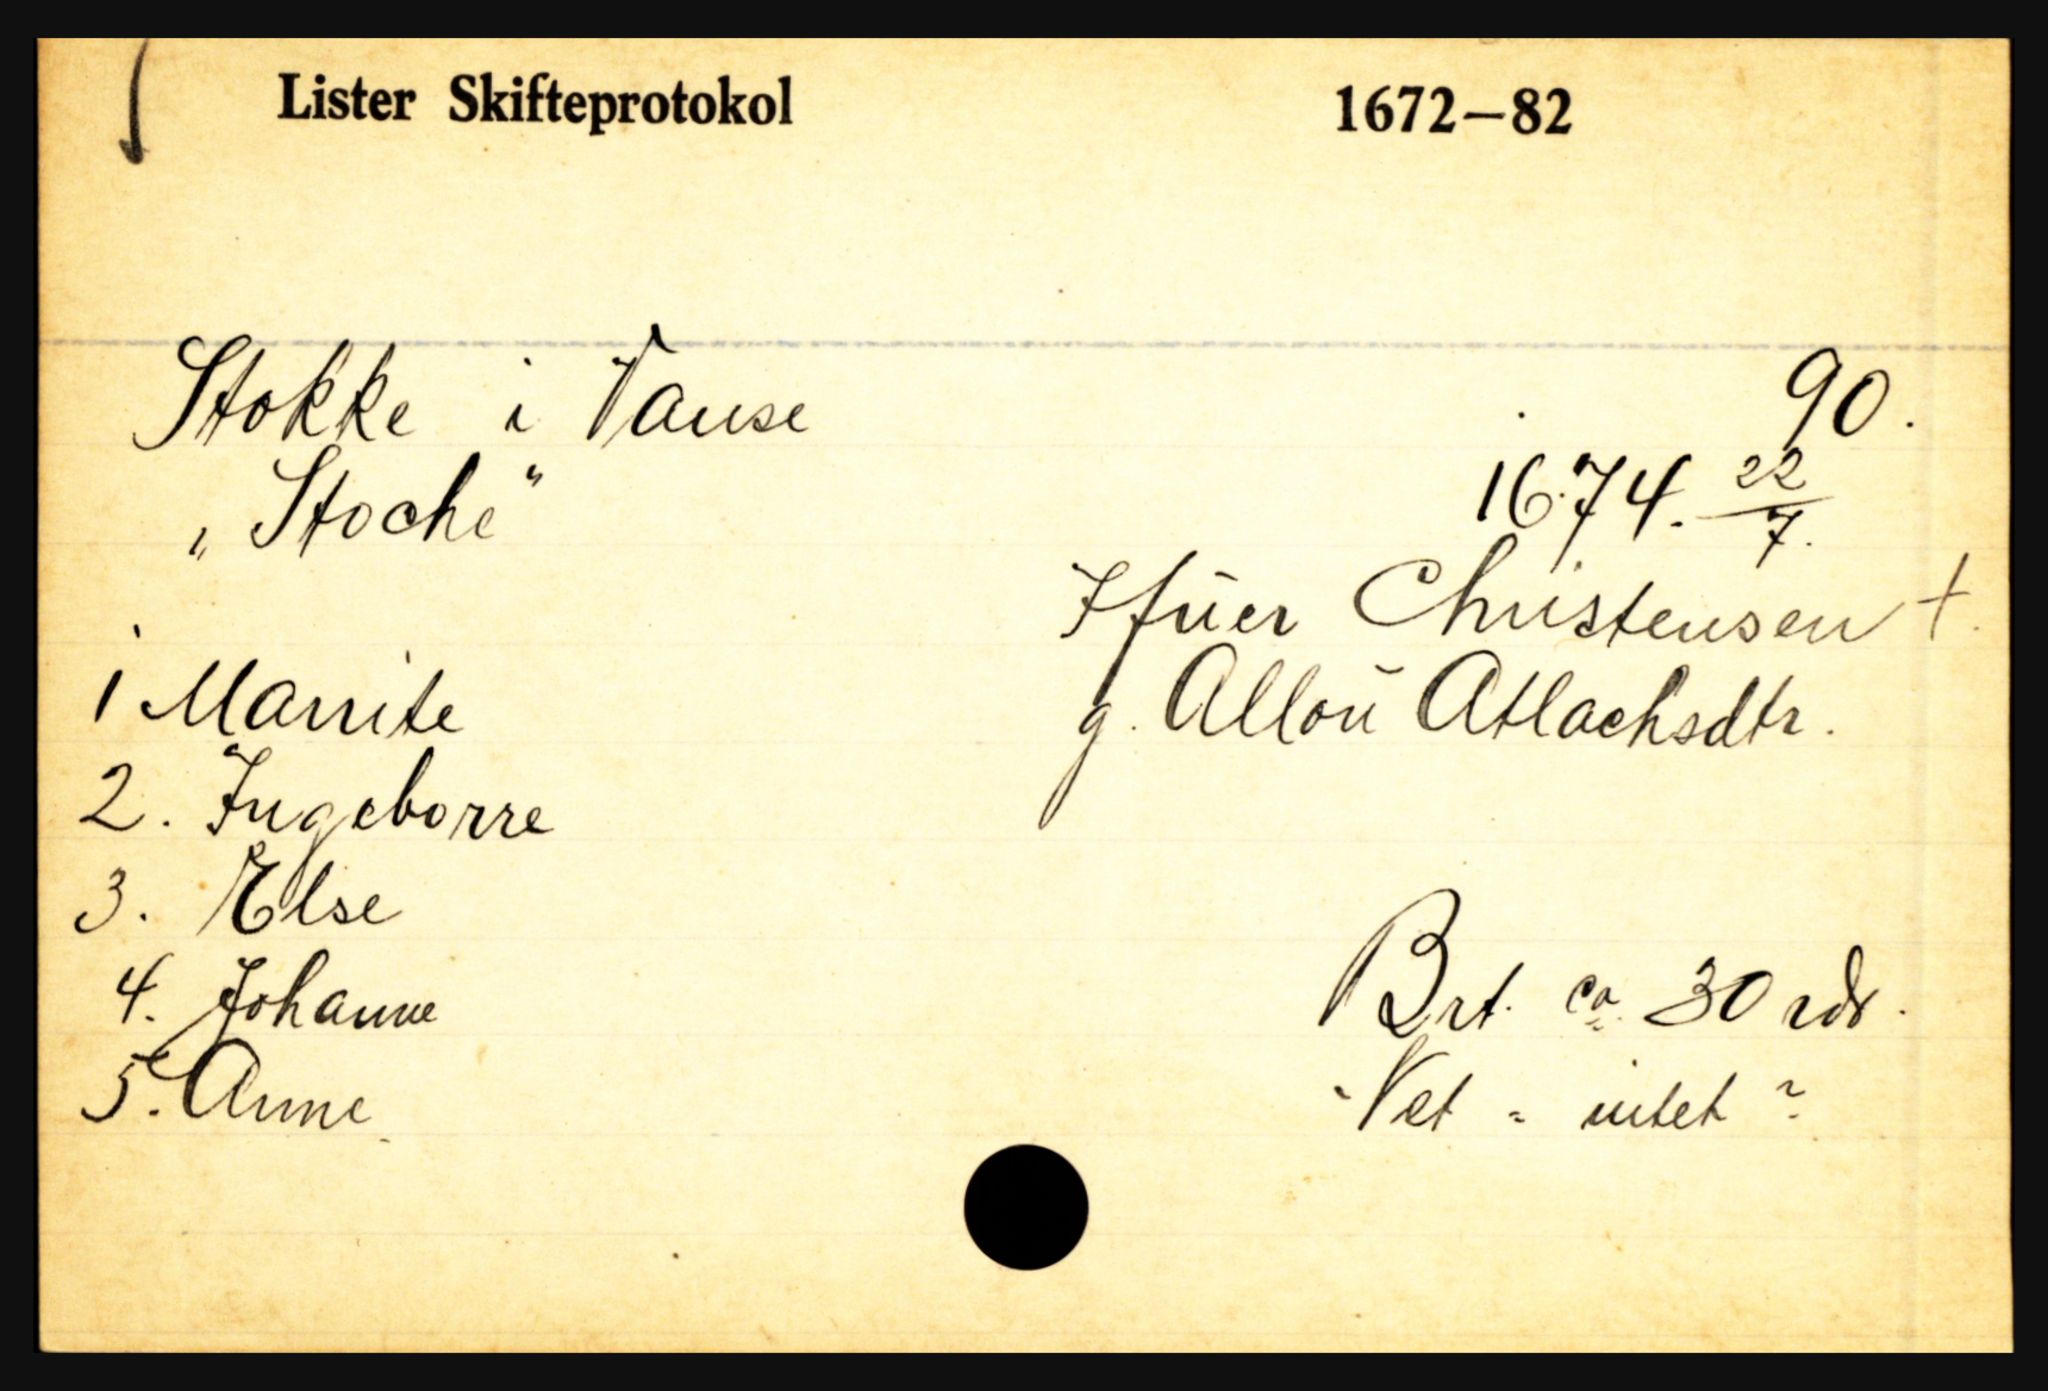 Lister Skifteprotokol 1672–82
Stokke i Vanse 90.
„Stoche" 1674. 22/7.
Ifuer Christensen †.
g. Allou Atlachsdtr.
1 Marrite
2. Ingeborre
3. Else
4. Johanne
5. Anne
Brt. ca. 30 rdr.
Net = intet ?